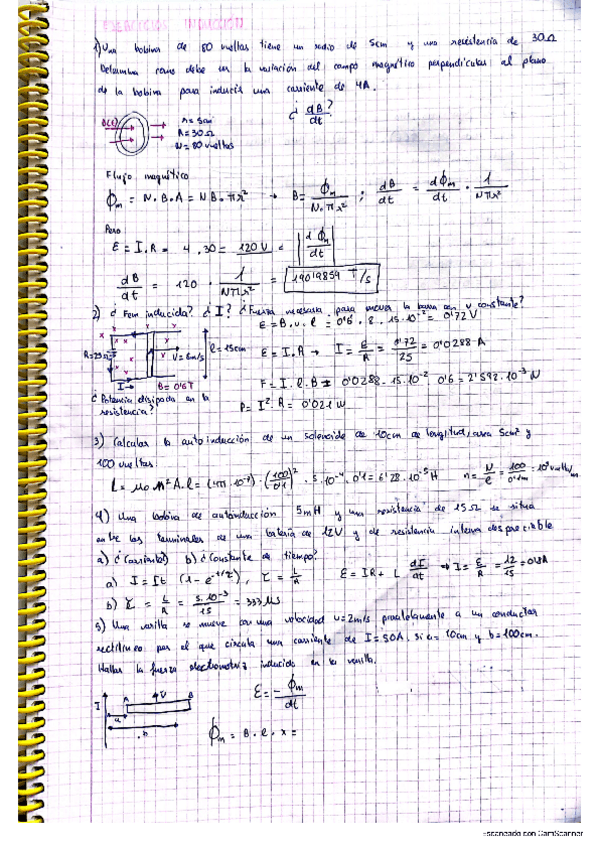 EJERCICIOS INDUCCION
1) Una bobina de 80 vueltas tiene un radio de 5cm y una resistencia de 30Ω
Determina como debe ser la variación del campo magnético perpendicular al plano
de la bobina para inducir una corriente de 4A.
¿ dB/dt ?
B(t)
r = 5cm
R = 30Ω
N = 80 vueltas
Flujo magnético
ϕm = N·B·A = NB·πr² → B = ϕm/N·πr² ; dB/dt = dϕm/dt · 1/Nπr²
Pero
ε = I·R = 4·30 = 120V = |dϕm/dt|
dB/dt = 120 · 1/Nπr² = 190'9859 T/s
2) ¿Fem inducida? ¿I? ¿Fuerza necesaria para mover la barra con v constante?
ε = B·v·l = 0'6·8·15·10⁻² = 0'72 V
R=25Ω
l = 15cm
ε = I·R → I = ε/R = 0'72/25 = 0'0288 A
I → B = 0'6T
F = I·l·B = 0'0288·15·10⁻²·0'6 = 2'592·10⁻³ N
¿Potencia disipada en la
resistencia?
P = I²·R = 0'021 W
3) Calcular la autoinducción de un solenoide de 10cm de longitud, area 5cm² y
100 vueltas.
L = μ₀·n²·A·l = (4π·10⁻⁷)·(100/0'1)²·5·10⁻⁴·0'1 = 6'28·10⁻⁵ H n = N/l = 100/0'1m = 10³ vuelta/m
4) Una bobina de autoinducción 5mH y una resistencia de 15Ω se situa
entre las terminales de una bateria de 12V y de resistencia interna despreciable
a) ¿Corriente? b) ¿Constante de tiempo?
a) I = If (1 - e^(-t/τ)), τ = L/R ε = IR + L dI/dt → I = ε/R = 12/15 = 0'8A
b) τ = L/R = 5·10⁻³/15 = 333 μs
5) Una varilla se mueve con una velocidad v=2m/s paralelamente a un conductor
rectilineo por el que circula una corriente de I=50A. Si a=10cm y b=100cm.
Hallar la fuerza electromotriz inducida en la varilla.
I A ↑v B
a
b
ε = - ϕm/dt
ϕm = B·l·x =
Escaneado con CamScanner